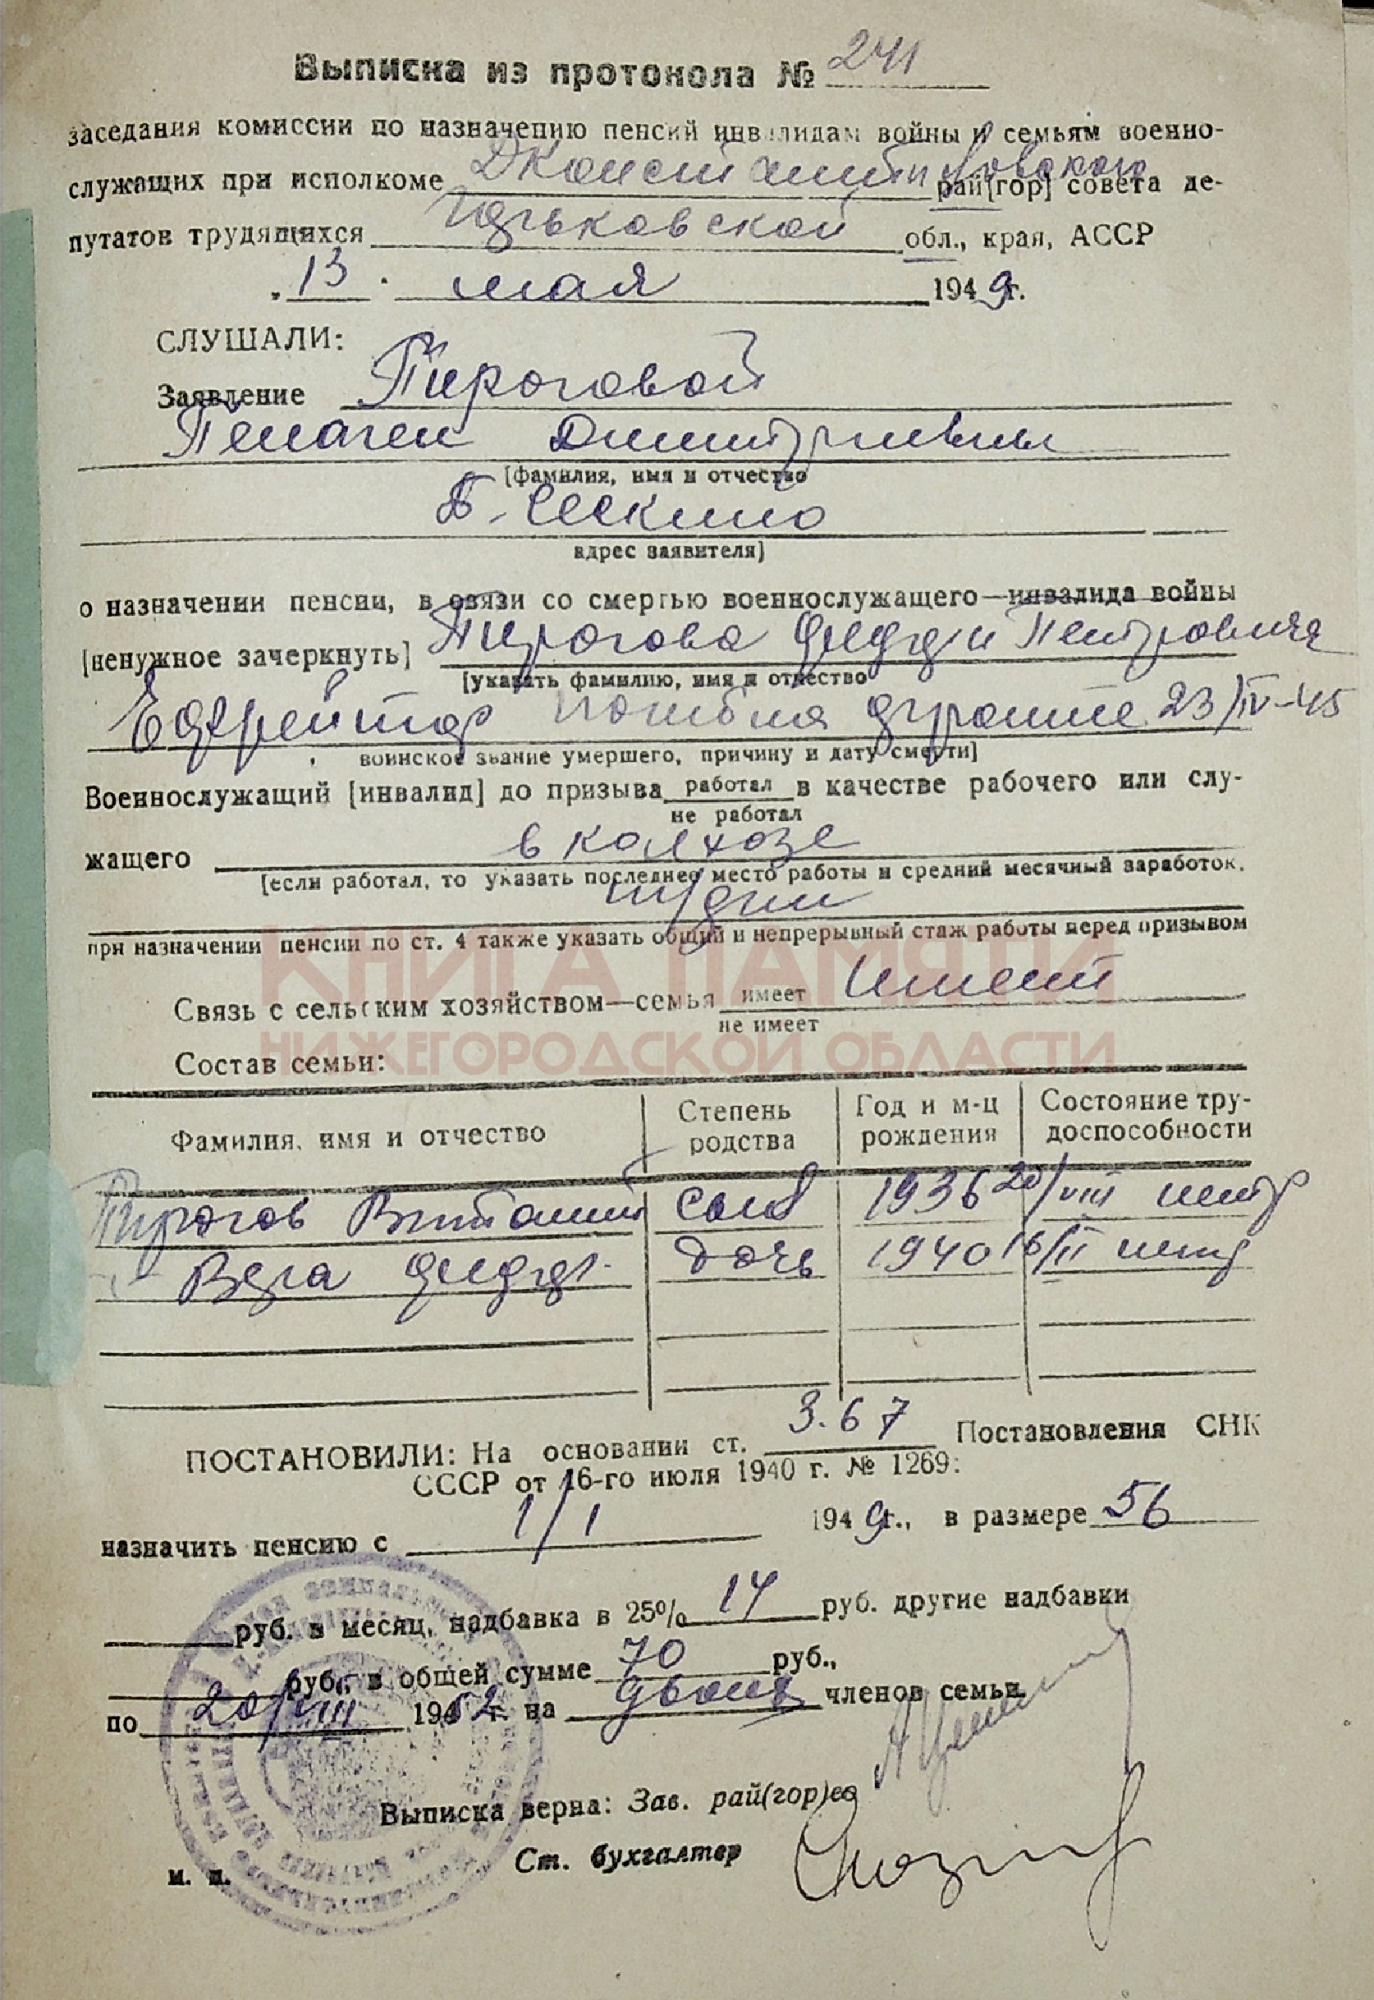 Выписка из протокола № 241
заседания комиссии по назначению пенсий инвалидам войны и семьям военно-
служащих при исполкоме ДКонстантиновского рай[гор] совета де-
путатов трудящихся Горьковской обл., края, АССР
„13" мая 1949 г.
СЛУШАЛИ:
Заявление Пироговой
Пелагеи Дмитриевны
[фамилия, имя и отчество
Б. Сескино
адрес заявителя]
о назначении пенсии, в связи со смертью военнослужащего—инвалида войны
[ненужное зачеркнуть] Пирогова Федора Петровича
[указать фамилию, имя и отчество
Ефрейтор погиб на фронте 23/IV-45
воинское звание умершего, причину и дату смерти]
Военнослужащий [инвалид] до призыва работал в качестве рабочего или слу-
не работал
жащего в колхозе
[если работал, то указать последнее место работы и средний месячный заработок,
тр/дни
при назначении пенсии по ст. 4 также указать общий и непрерывный стаж работы перед призывом
КНИГА ПАМЯТИ
Связь с сельским хозяйством—семья имеет имеет
не имеет
НИЖЕГОРОДСКОЙ ОБЛАСТИ
Состав семьи:
Фамилия, имя и отчество Степень родства Год и м-ц рождения Состояние тру-доспособности
Пирогов Виталий сын 1936 20/VIII
Вера Федор. дочь 1940 16/II
ПОСТАНОВИЛИ: На основании ст. 3.6 7 Постановления СНК
СССР от 16-го июля 1940 г. № 1269:
назначить пенсию с 1/I 1949 г., в размере 56
руб. в месяц, надбавка в 25% 14 руб. другие надбавки
руб., в общей сумме 70 руб.,
по 20/VIII 1952 г. на двоих членов семьи
Выписка верна: Зав. рай(гор)со
Ст. бухгалтер
м. п.